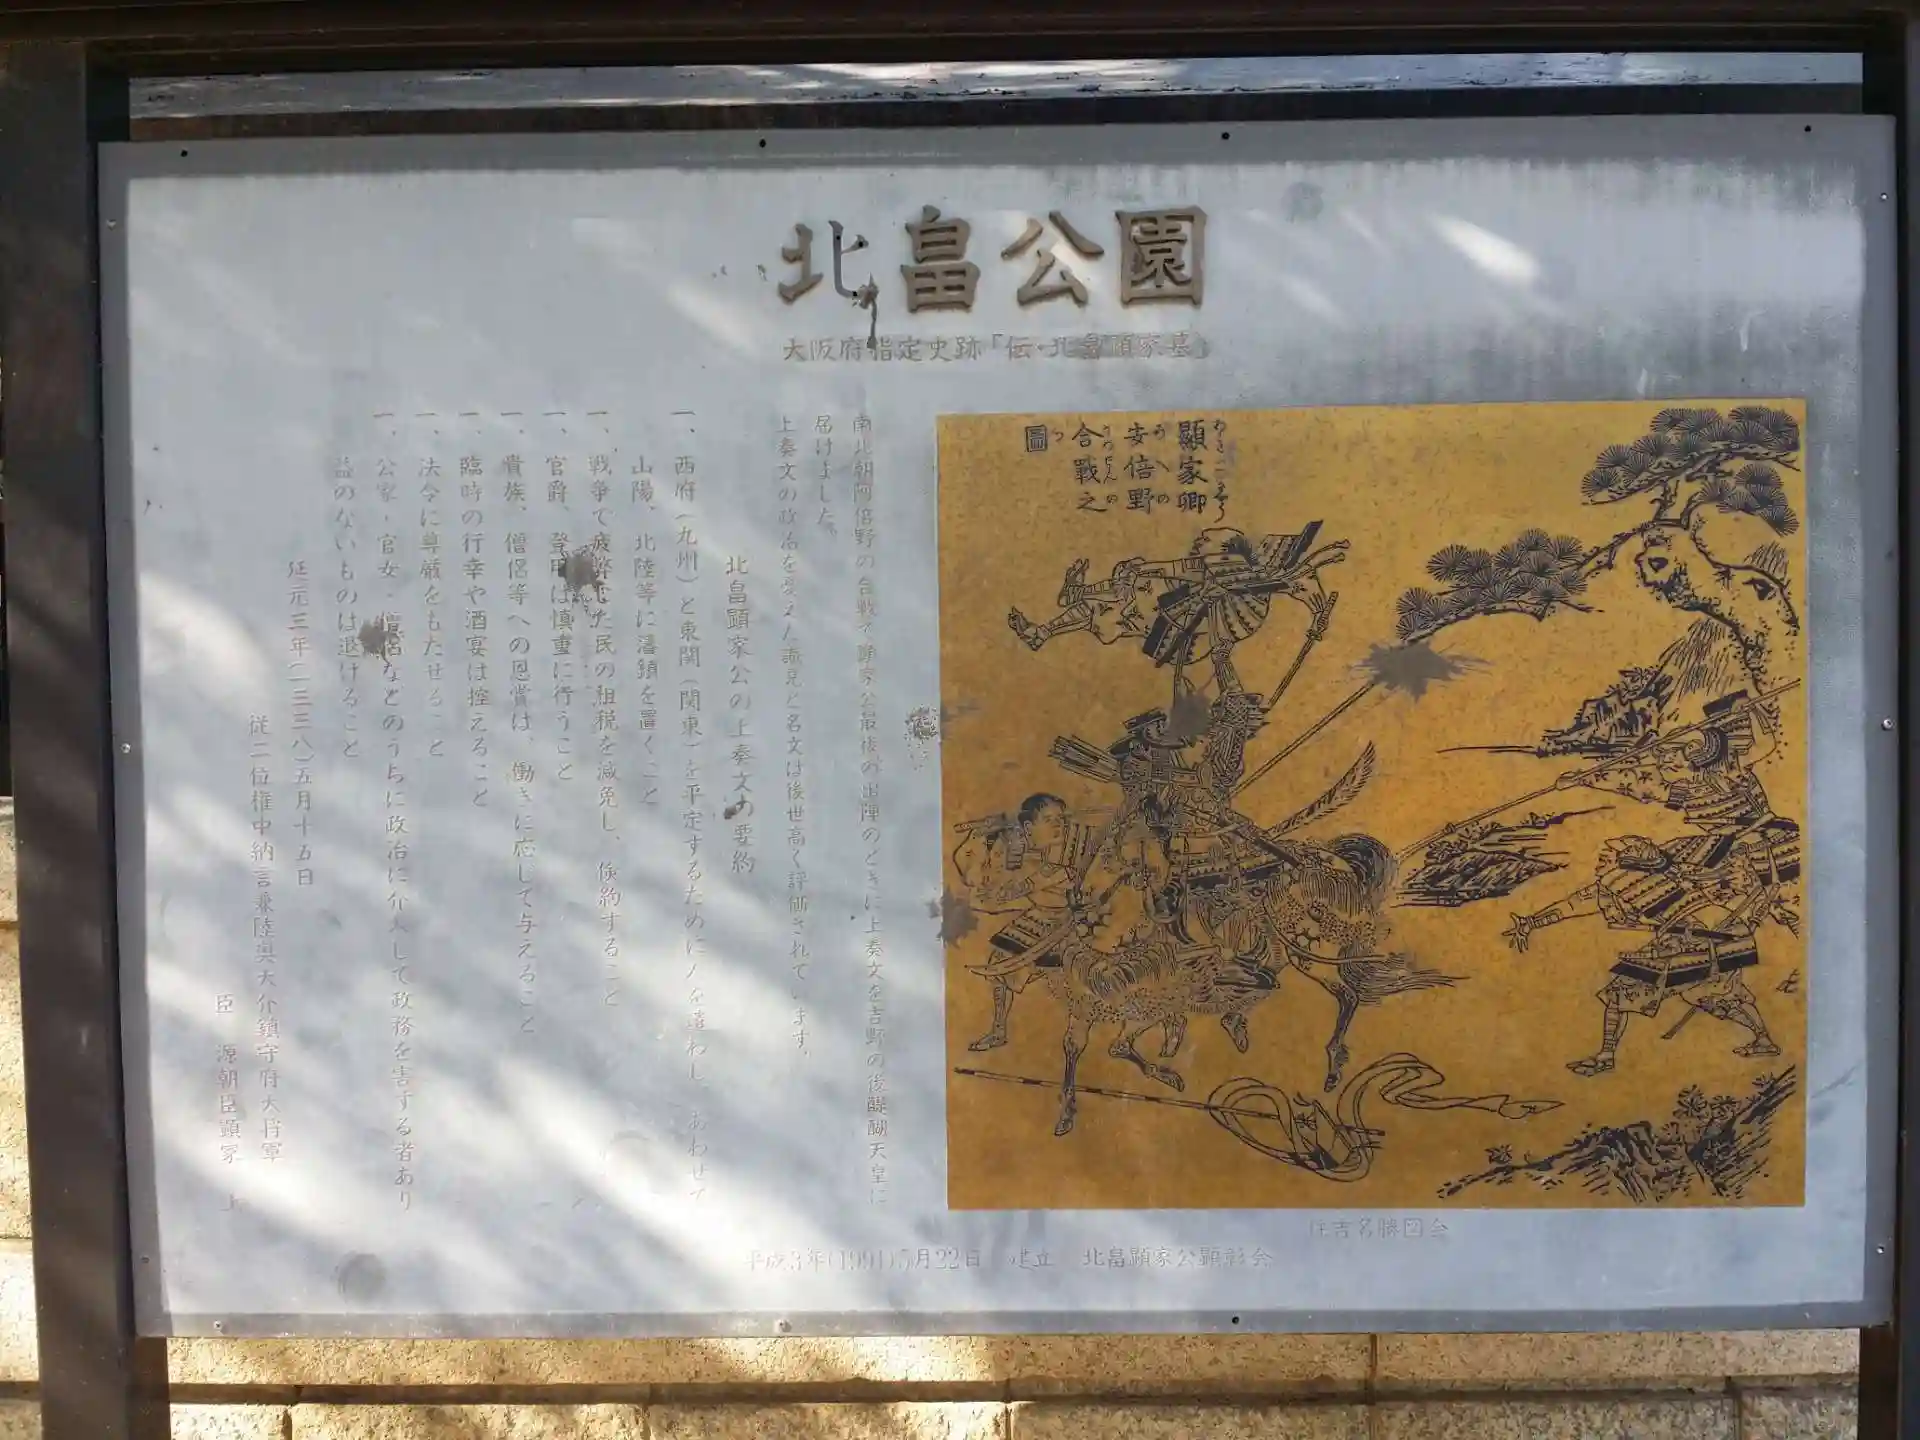 北畠公園
大阪府指定史跡「伝・北畠顕家墓」
顯家卿
安倍野
合戰之
圖
南北朝阿倍野の合戦で顕家公最後の出陣のときに上奏文を吉野の後醍醐天皇に
届けました。
上奏文の政治を憂えた識見と名文は後世高く評価されています。
北畠顕家公の上奏文の要約
一、西府(九州)と東関(関東)を平定するために人を遣わし、あわせて
山陽、北陸等に藩鎮を置くこと
一、戦争で疲弊した民の租税を減免し、倹約すること
一、官爵、登用は慎重に行うこと
一、貴族、僧侶等への恩賞は、働きに応じて与えること
一、臨時の行幸や酒宴は控えること
一、法令に尊厳をもたせること
一、公家・官女・僧侶などのうちに政治に介入して政務を害する者あり
益のないものは退けること
延元三年(一三三八)五月十五日
従二位権中納言兼陸奥大介鎮守府大将軍
臣 源朝臣顕家 上
住吉名勝図会
平成3年(1991)5月22日 建立 北畠顕家公顕彰会